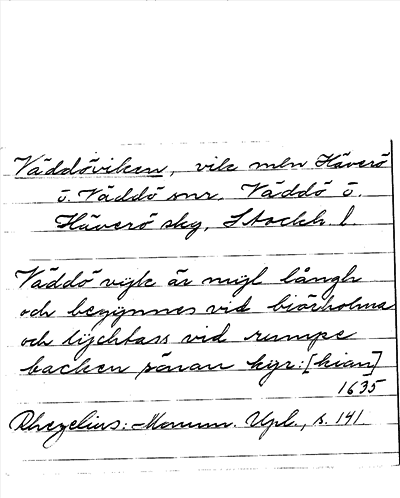 Väddöviken, vik mln Häverö
o. Väddö snr. Väddö o.
Häverö skg, Stockh. l.
Väddö vijk är mijl långh
och begynnes vid biörholma
och lychtass vid rumpe
backen såran kyr: [kian]
1635
Rhezelius: Monum. Upl., s. 141.